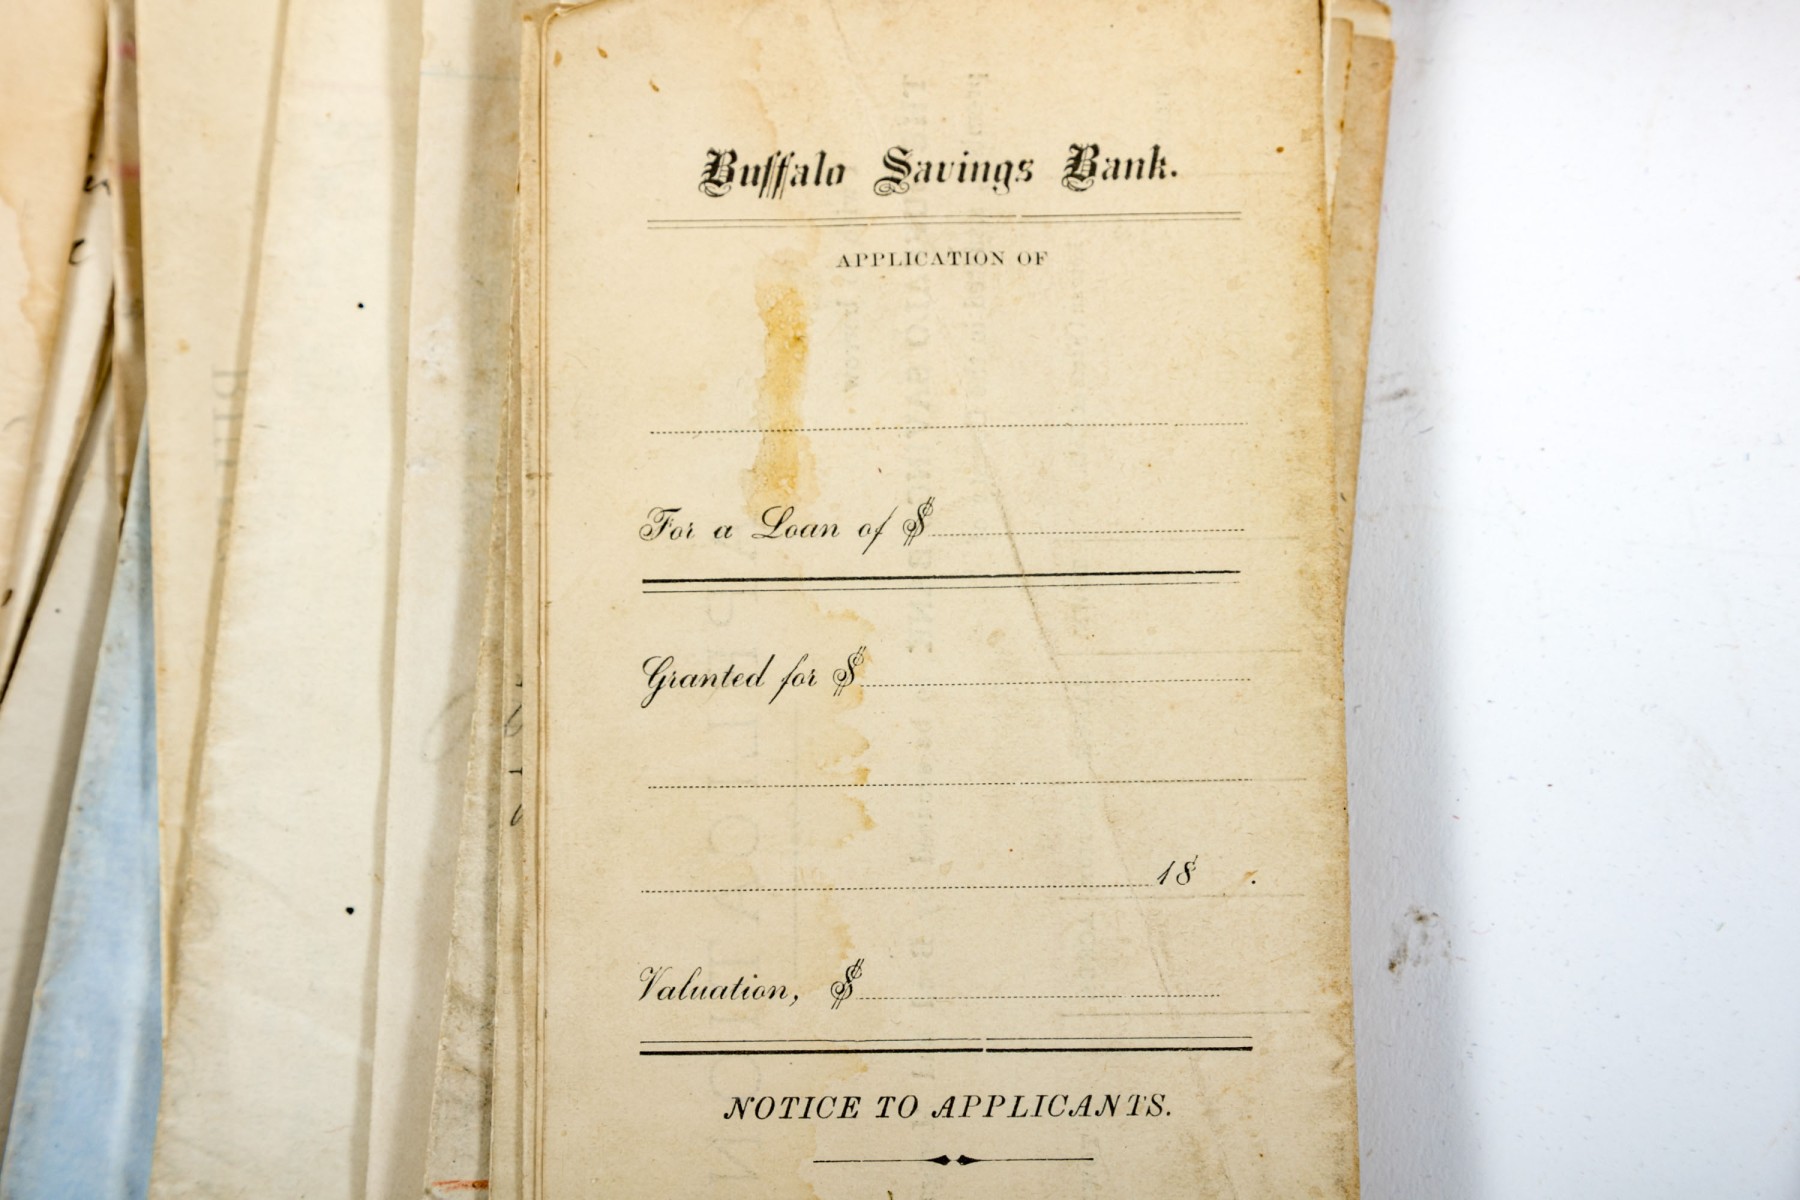 Buffalo Savings Bank.
APPLICATION OF
For a Loan of $
Granted for $
18 .
Valuation, $
NOTICE TO APPLICANTS.